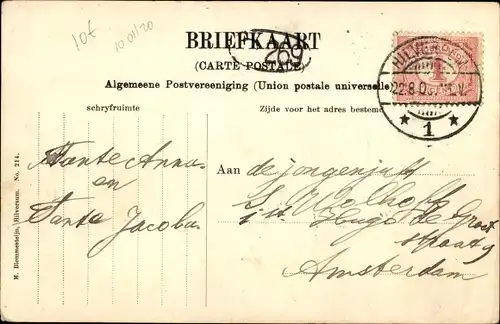 10f
BRIEFKAART
269
(CARTE POSTALE)
Algemeene Postvereeniging (Union postale universelle)
schryfruimte
Zijde voor het adres bestemd
HILVERSUM
22.8.0
1
Tante Anna
en
Tante Jacoba
Aan
de jongenjuff
Wolhoff
Hugo de Groot
straat 9
Amsterdam
M. Blemmesteijn, Hilversum. No. 214.